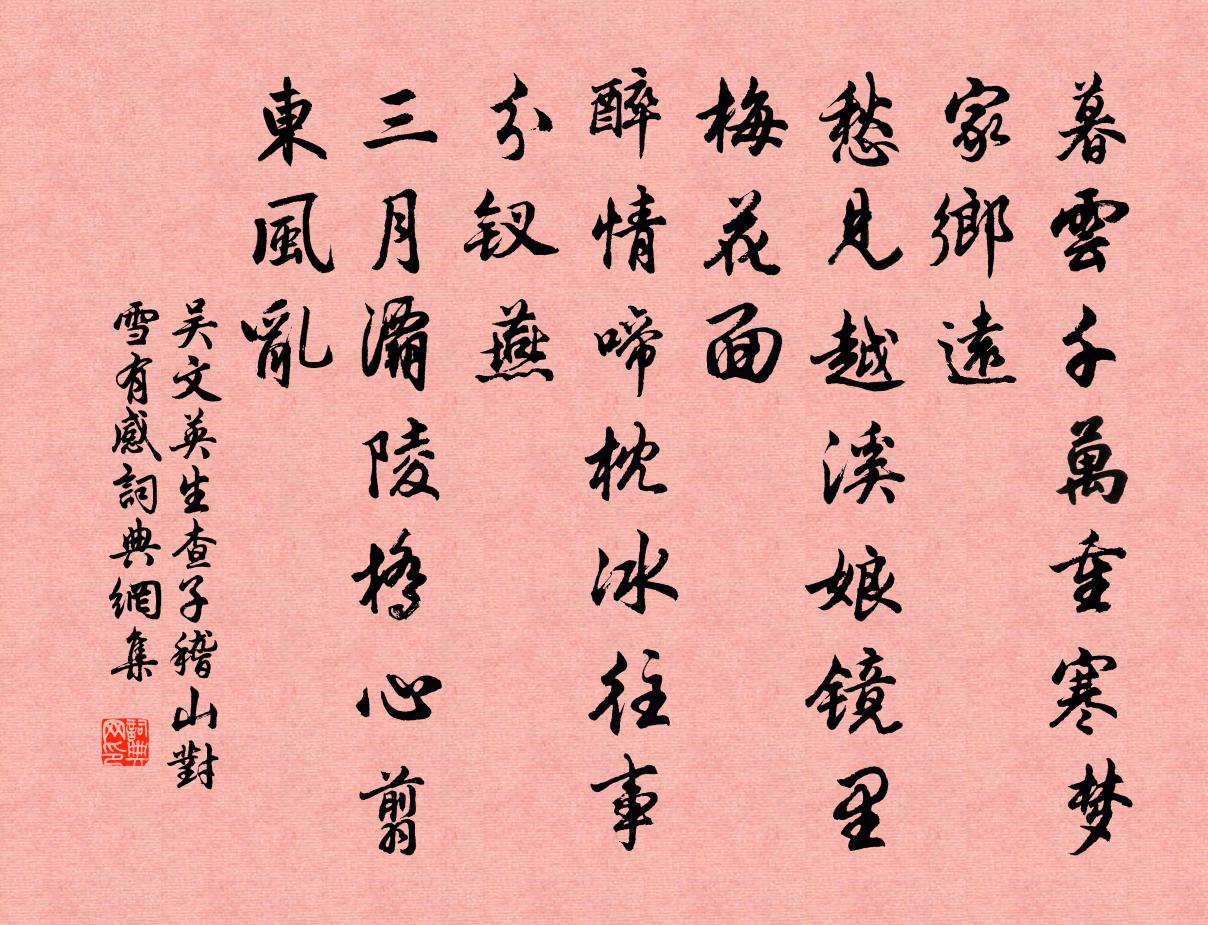 暮雲千萬重寒梦
家鄉遠
愁見越溪娘镜里
梅花面
醉情啼枕冰往事
分钗燕
三月灞陵橋心翦
東風亂
吴文英生查子稽山對
雪有感詞典網集
詞典网印